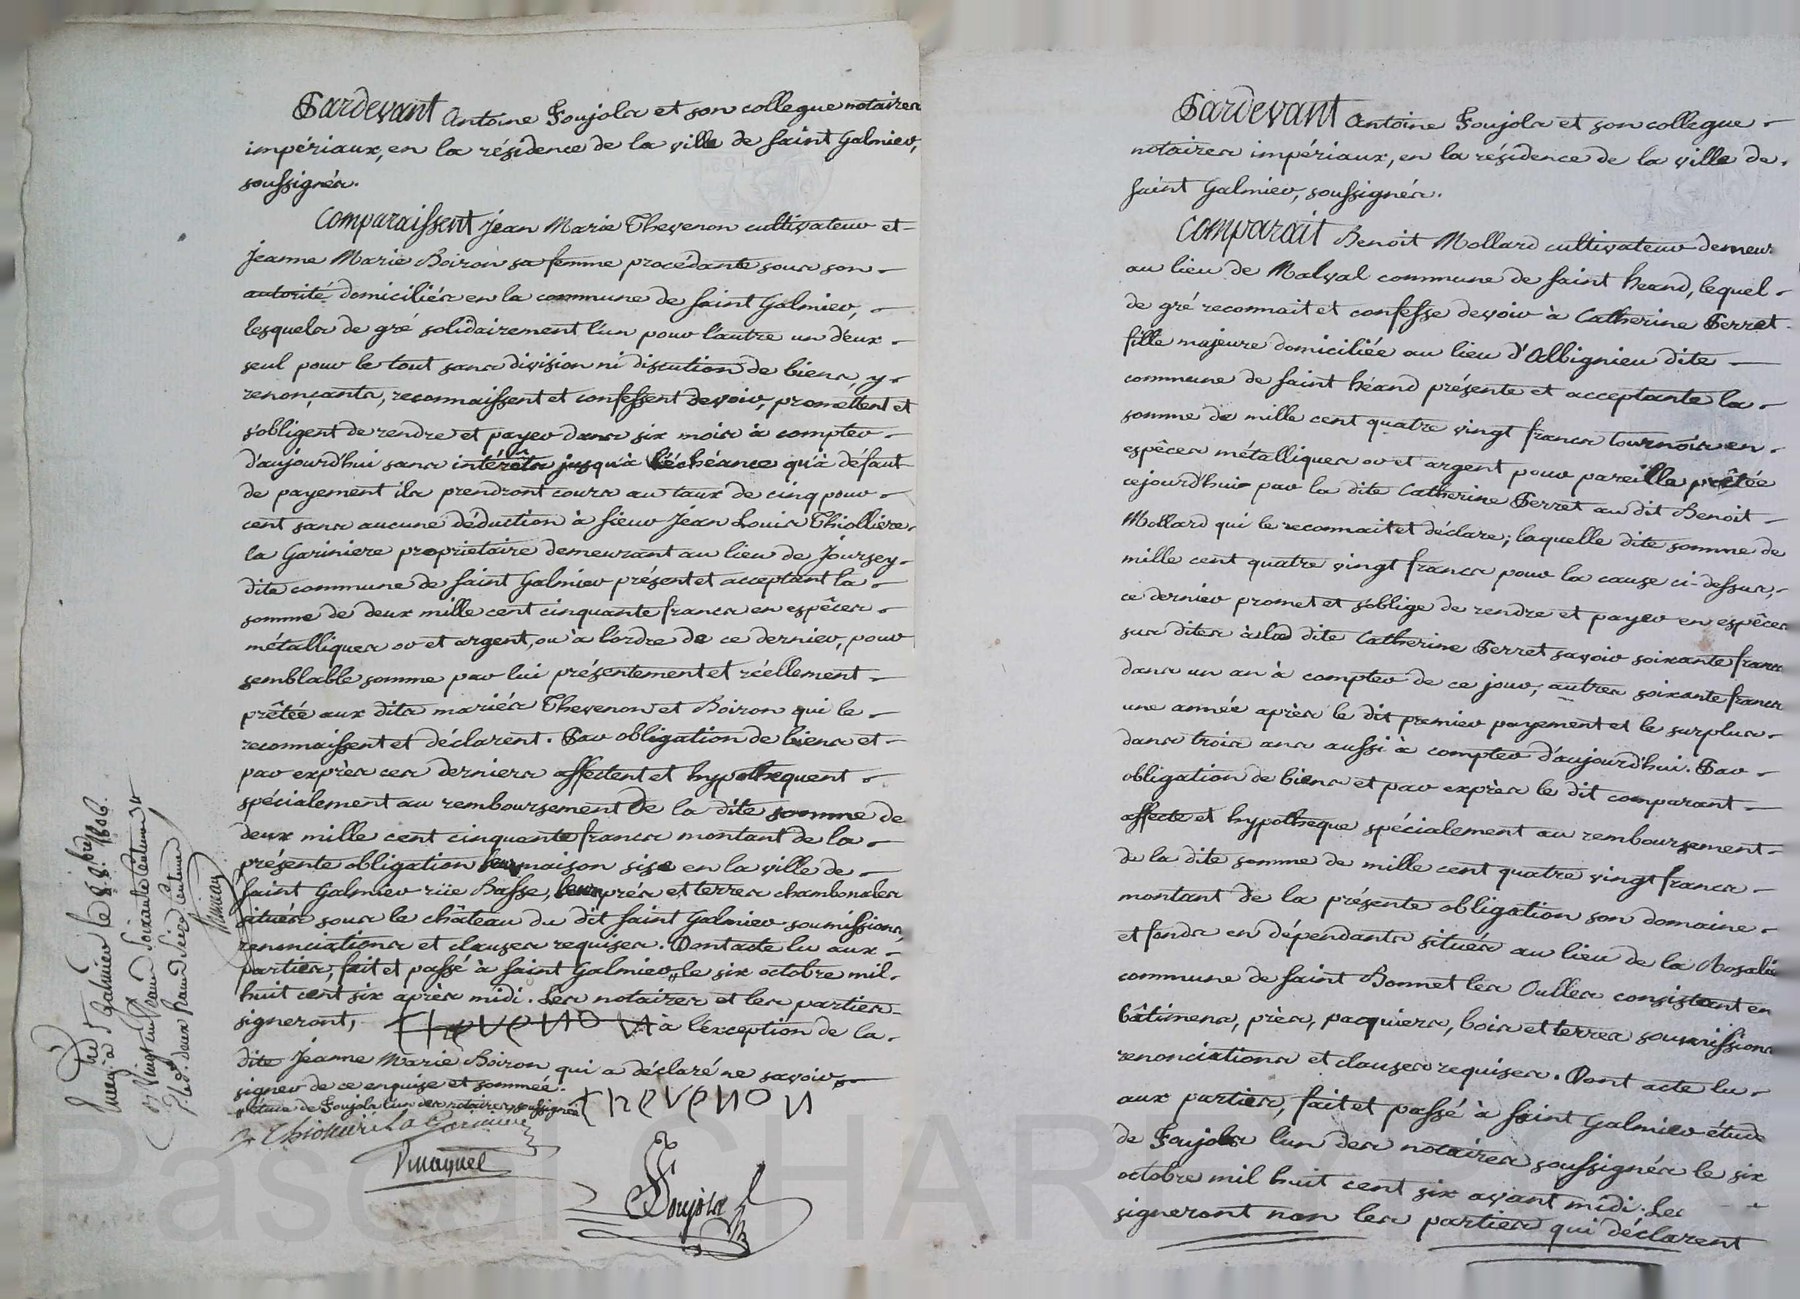 Pardevant Antoine Foujols et son collegue notaires
impériaux, en la résidence de la ville de Saint Galmier,
soussignés.
Comparaissent Jean Marie Thevenon cultivateur et
Jeanne Marie Boiron sa femme procédante sous son
autorité domiciliés en la commune de Saint Galmier,
lesquels de gré solidairement l'un pour l'autre un d'eux
seul pour le tout sans division ni discution de biens, y
renonçants, reconnaissent et confessent devoir, promettent et
s'obligent de rendre et payer dans six mois à compter
d'aujourd'hui sans intérêts jusqu'à l'échéance qu'à défaut
de payement ils prendront cours au taux de cinq pour
cent sans aucune déduction à sieur Jean Louis Thiolliere
la Gariniere propriétaire demeurant au lieu de Joursey
dite commune de Saint Galmier présent et acceptant la
somme de deux mille cent cinquante francs en espêces
métalliques or et argent, ou à l'ordre de ce dernier, pour
semblable somme par lui présentement et réellement
prêtée aux dits mariés Thevenon et Boiron qui le
reconnaissent et déclarent. Par obligation de biens et
par exprès ces derniers affectent et hypothequent
spécialement au remboursement de la dite somme de
deux mille cent cinquante francs montant de la
présente obligation leur maison sise en la ville de
Saint Galmier rüe Basse, leurs prés et terres chambonales
situés sous le château du dit Saint Galmier soumissions,
renonciations et clauses requises. Dont acte lu aux
parties, fait et passé à Saint Galmier, le six octobre mil
huit cent six après midi. Les notaires et les parties
signeront, Thevenon à l'exception de la
dite Jeanne Marie Boiron qui a déclaré ne savoir
signer de ce enquise et sommée.
étude de Foujols l'un des notaires soussignés
Thevenon
Thiolliere La Gariniere
Foujols
à St Galmier le 8 8bre 1806.
Pardevant Antoine Foujols et son collegue
notaires impériaux, en la résidence de la ville de
Saint Galmier, soussignés.
Comparait Benoit Mollard cultivateur demeur.
au lieu de Malval commune de Saint heand, lequel
de gré reconnait et confesse devoir à Catherine Perret
fille majeure domiciliée au lieu d'Albignieu dite
commune de Saint héand présente et acceptante la
somme de mille cent quatre vingt francs tournois en
espêces métalliques or et argent pour pareille prêtée
cejourd'hui par la dite Catherine Perret au dit Benoit
Mollard qui le reconnait et déclare; laquelle dite somme de
mille cent quatre vingt francs pour la cause ci-dessus,
ce dernier promet et s'oblige de rendre et payer en espêces
sus dites à la dite Catherine Perret savoir soixante francs
dans un an à compter de ce jour, autres soixante francs
une année après le dit premier payement et le surplus
dans trois ans aussi à compter d'aujourd'hui. Par
obligation de biens et par exprès le dit comparant
affecte et hypotheque spécialement au remboursement
de la dite somme de mille cent quatre vingt francs
montant de la présente obligation son domaine
et fonds en dépendants situés au lieu de la Rosalie
commune de Saint Bonnet les Oulles consistant en
bâtimens, près, pacquiers, bois et terres soumissions
renonciations et clauses requises. Dont acte lu
aux parties, fait et passé à Saint Galmier étude
de Foujols l'un des notaires soussignés le six
octobre mil huit cent six avant midi. Les
signeront non les parties qui déclarent
Pascal CHARLE